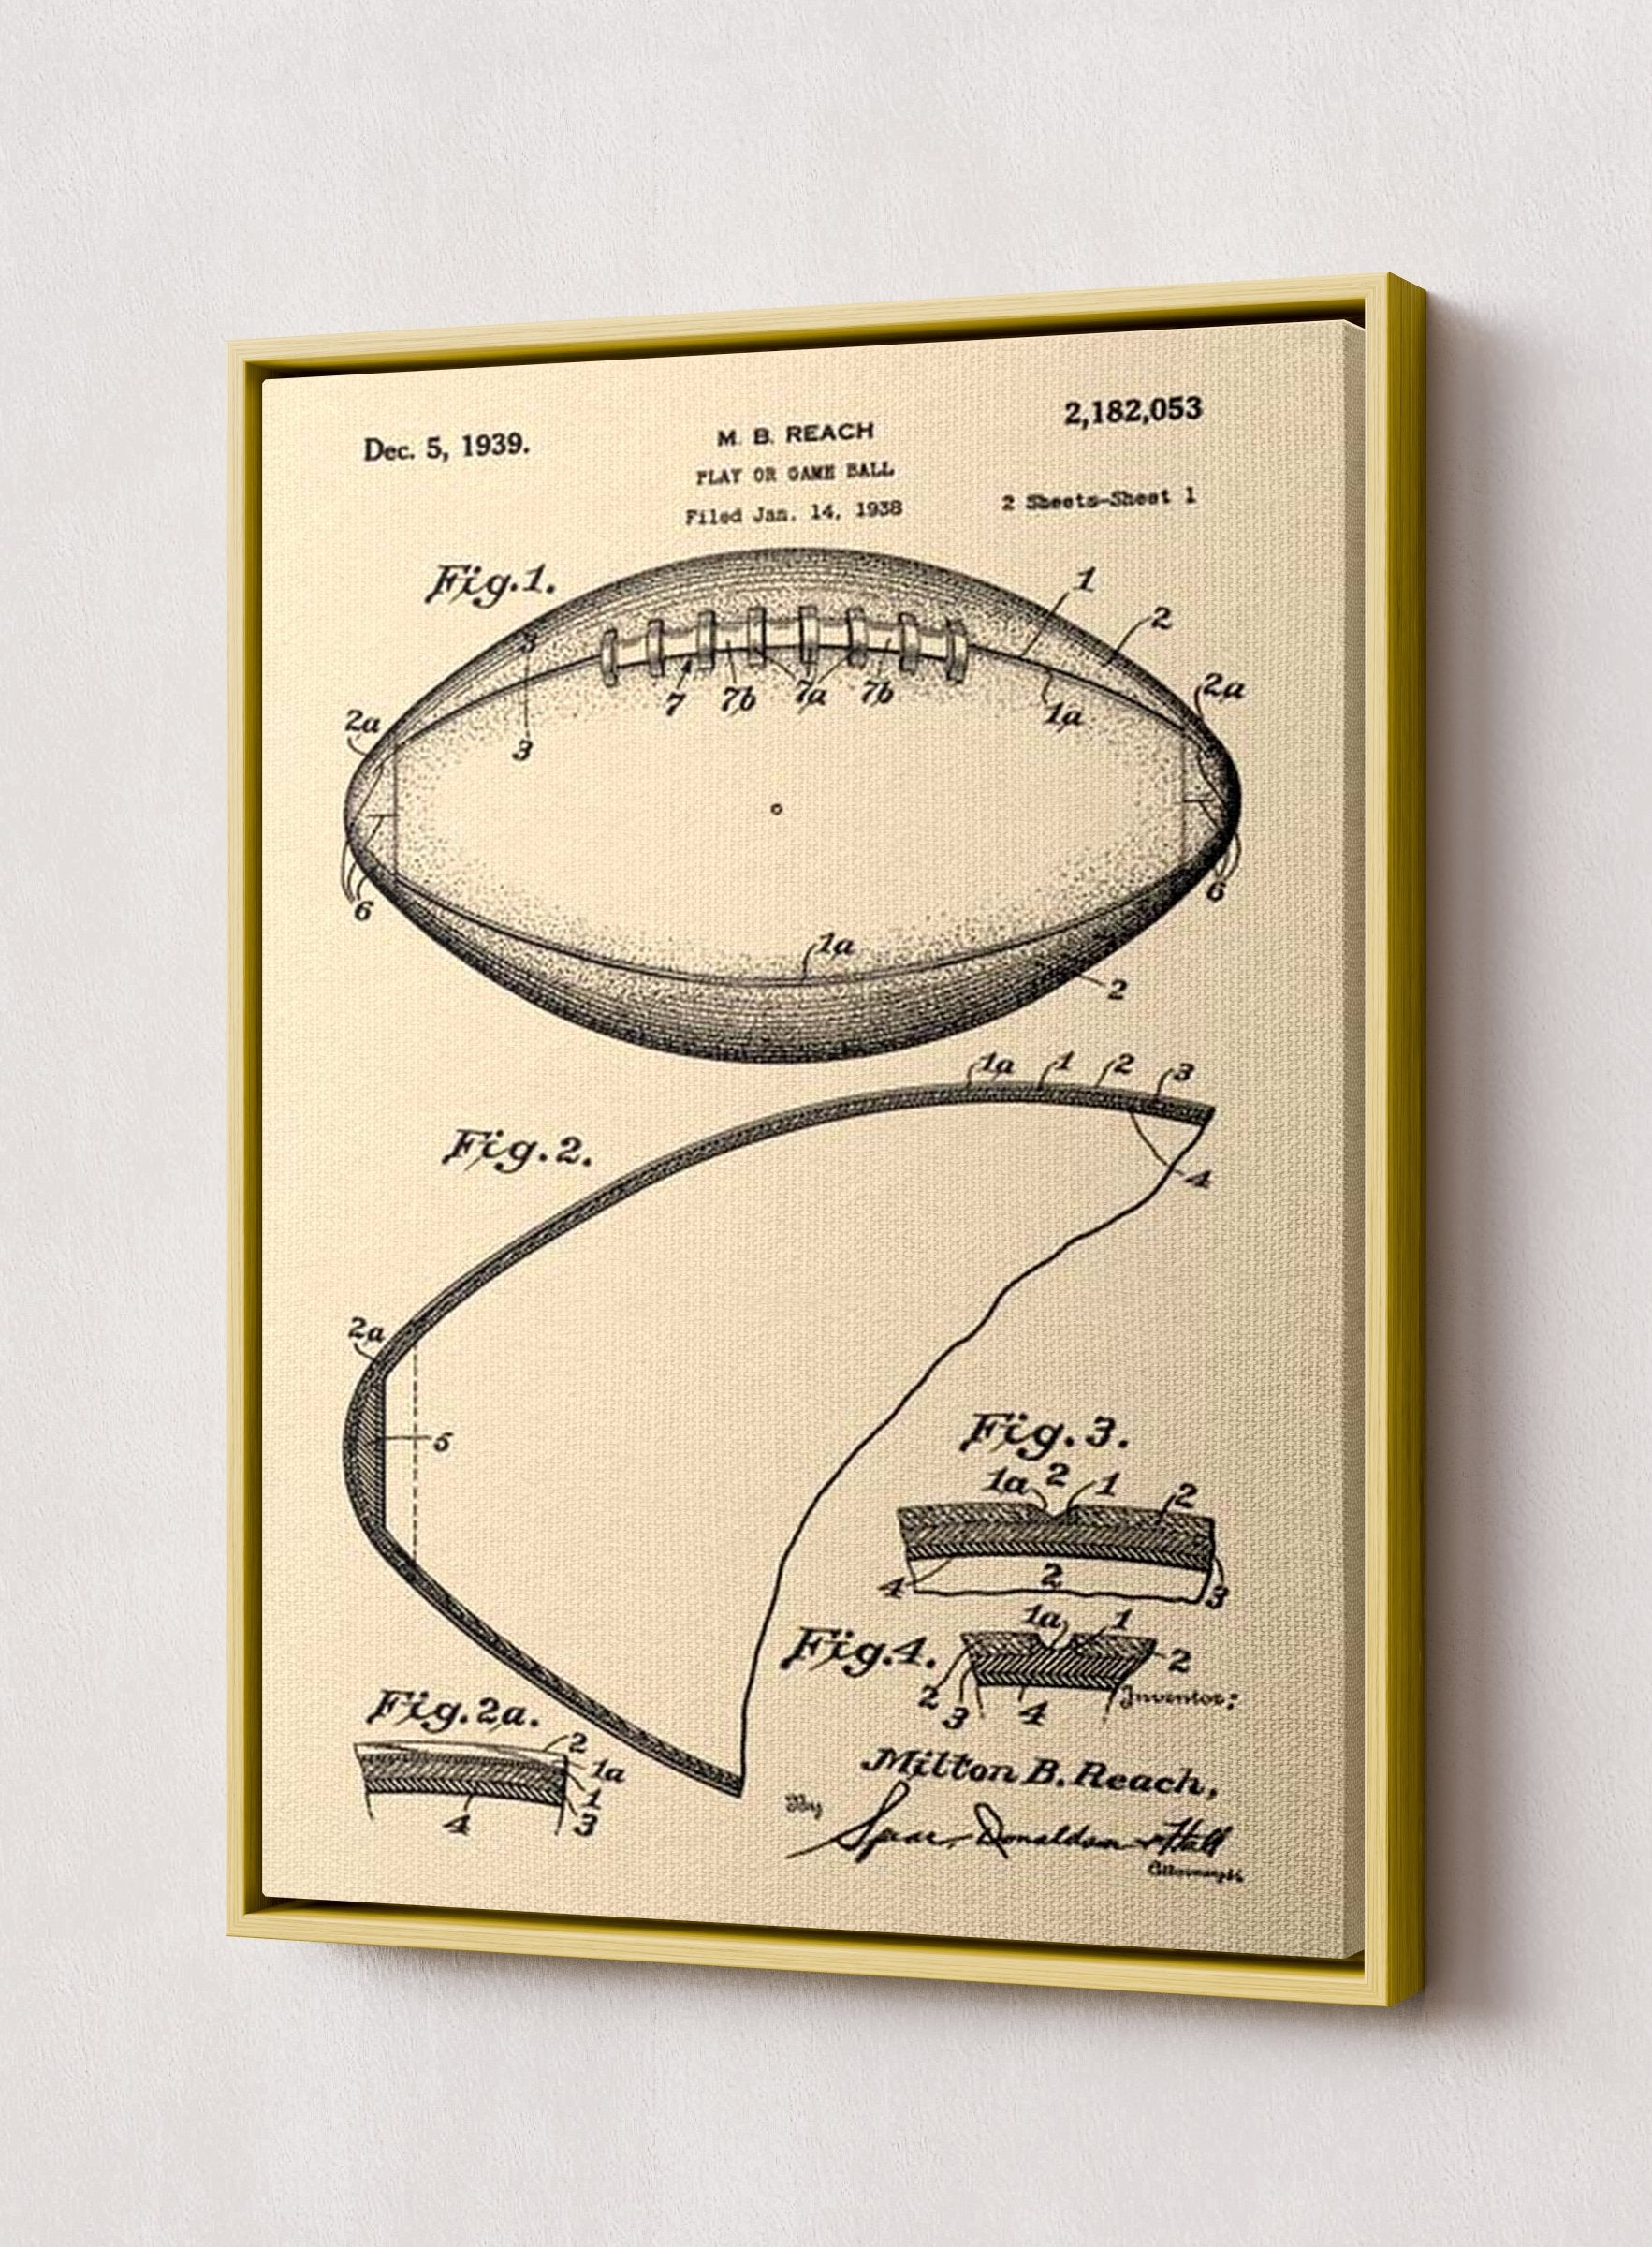 2,182,053
Dec. 5, 1939.
M. B. REACH
PLAY OR GAME BALL
Filed Jan. 14, 1938
2 Sheets-Sheet 1
Fig.1.
1
2
3
7 7b 7a 7b
2a
2a
1a
3
6
6
1a
2
1a 1 2 3
Fig.2.
4
2a
5
Fig.3.
1a 2 1 2
4 2 3
1a 1
Fig.4.
2
2 3 4
Inventor:
Fig.2a.
2
1a
1
4 3
Milton B. Reach,
By
Spear, Donaldson & Hall
Attorneys